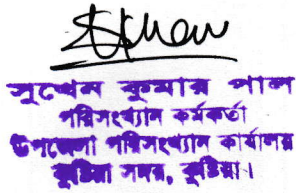 সুখেন কুমার পাল
পরিসংখ্যান কর্মকর্তা
উপজেলা পরিসংখ্যান কার্যালয়
কুষ্টিয়া সদর, কুষ্টিয়া।